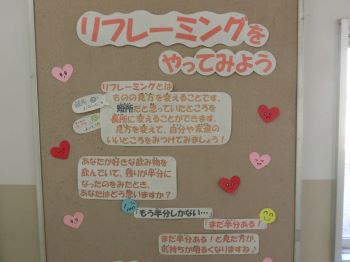 リフレーミングを
やってみよう
リフレーミングとは
ものの見方を変えることです。
短所だと思っていたところを
長所に変えることができます。
見方を変えて、自分や友達の
いいところをみつけてみましょう!
あなたが好きな飲み物を
飲んでいて、残りが半分に
なったのをみたとき、
あなたはどう思いますか?
「もう半分しかない…」
「まだ半分ある!」
まだ半分ある!と見た方が、
気持ちが明るくなりますね♪